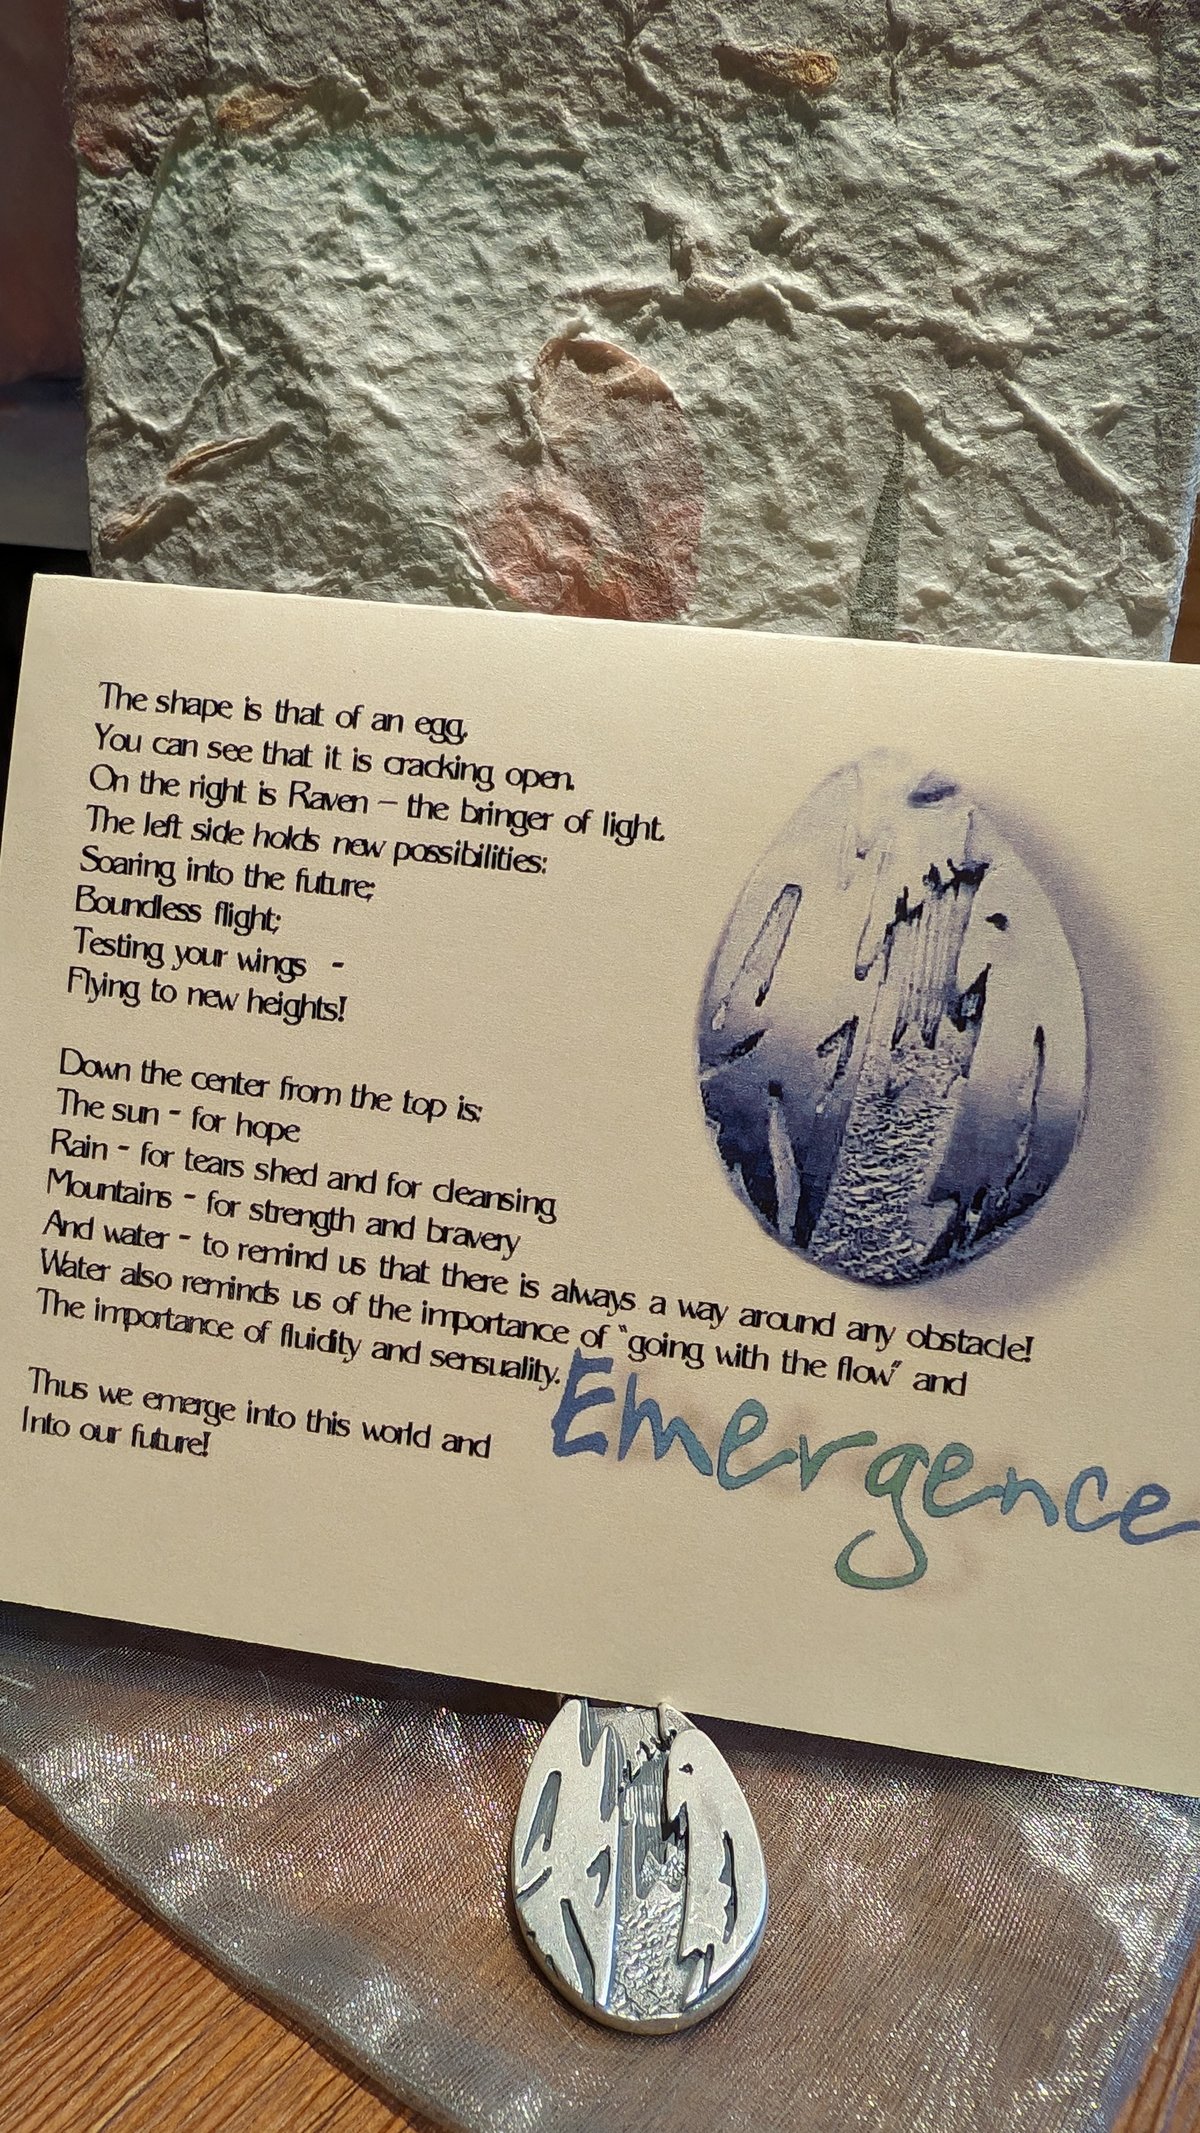 The shape is that of an egg,
You can see that it is cracking open.
On the right is Raven – the bringer of light.
The left side holds new possibilities:
Soaring into the future;
Boundless flight;
Testing your wings -
Flying to new heights!
Down the center from the top is:
The sun - for hope
Rain - for tears shed and for cleansing
Mountains - for strength and bravery
And water - to remind us that there is always a way around any obstacle!
Water also reminds us of the importance of "going with the flow" and
The importance of fluidity and sensuality.
Thus we emerge into this world and
Into our future!
Emergence